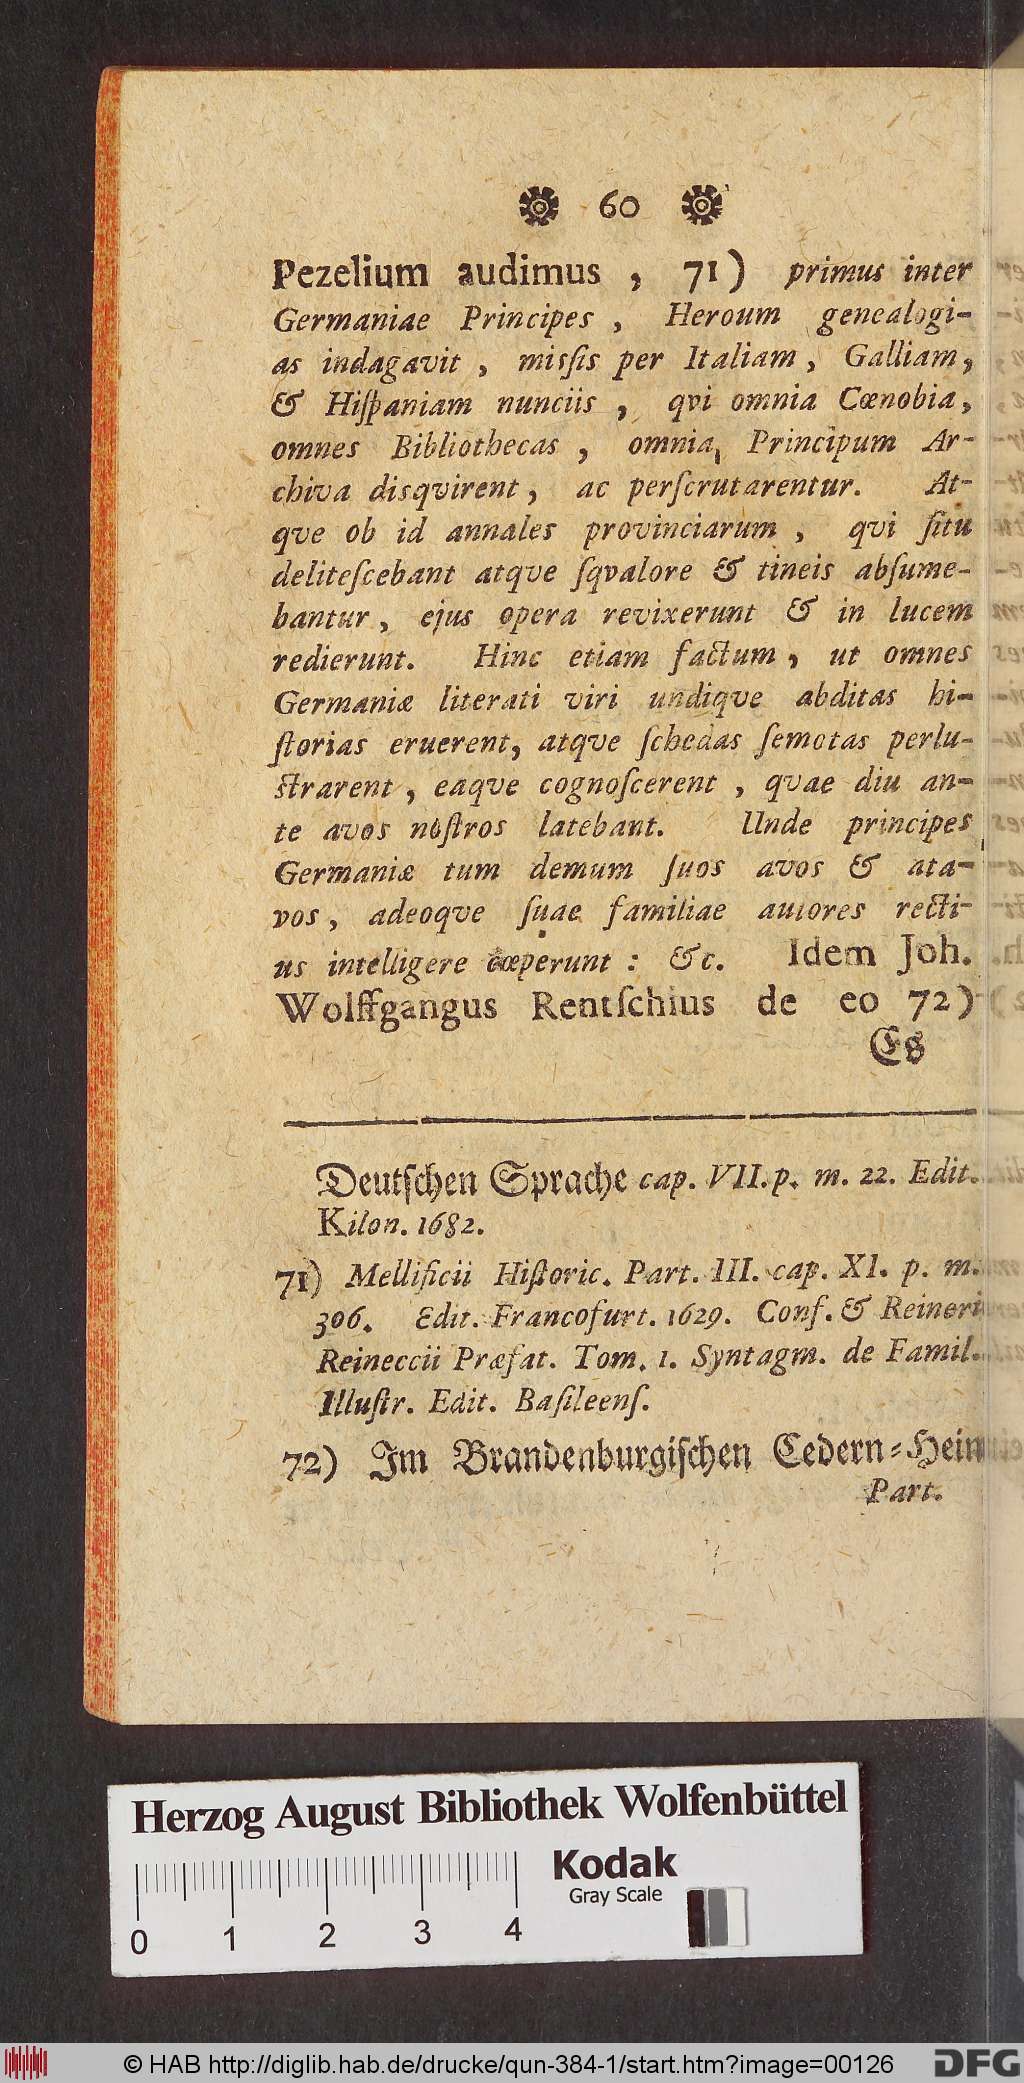 60
Pezelium audimus , 71) primus inter
Germaniae Principes , Heroum genealogi-
as indagavit , misſis per Italiam , Galliam,
& Hiſpaniam nunciis , qvi omnia Cœnobia,
omnes Bibliothecas , omnia, Principum Ar-
chiva disqvirent , ac perſcrutarentur. At-
qve ob id annales provinciarum , qvi ſitu
deliteſcebant atqve ſqvalore & tineis abſume-
bantur , ejus opera revixerunt & in lucem
redierunt. Hinc etiam factum , ut omnes
Germaniæ literati viri undiqve abditas hi-
ſtorias eruerent, atqve ſchedas ſemotas perlu-
ſtrarent , eaqve cognoſcerent , qvae diu an-
te avos noſtros latebant. Unde principes
Germaniæ tum demum ſuos avos & ata-
vos , adeoqve ſuae familiae autores recti-
us intelligere cœperunt : &c. Idem Joh.
Wolffgangus Rentſchius de eo 72)
Es
Deutſchen Sprache cap. VII. p. m. 22. Edit.
Kilon. 1682.
71) Mellificii Hiſtoric. Part. III. cap. XI. p. m.
306. Edit. Francofurt. 1629. Conf. & Reineri
Reineccii Præfat. Tom. 1. Syntagm. de Famil.
Illuſtr. Edit. Baſileenſ.
72) Im Brandenburgiſchen Cedern-Hein
Part.
Herzog August Bibliothek Wolfenbüttel
Kodak
Gray Scale
0 1 2 3 4
© HAB http://diglib.hab.de/drucke/qun-384-1/start.htm?image=00126
DFG